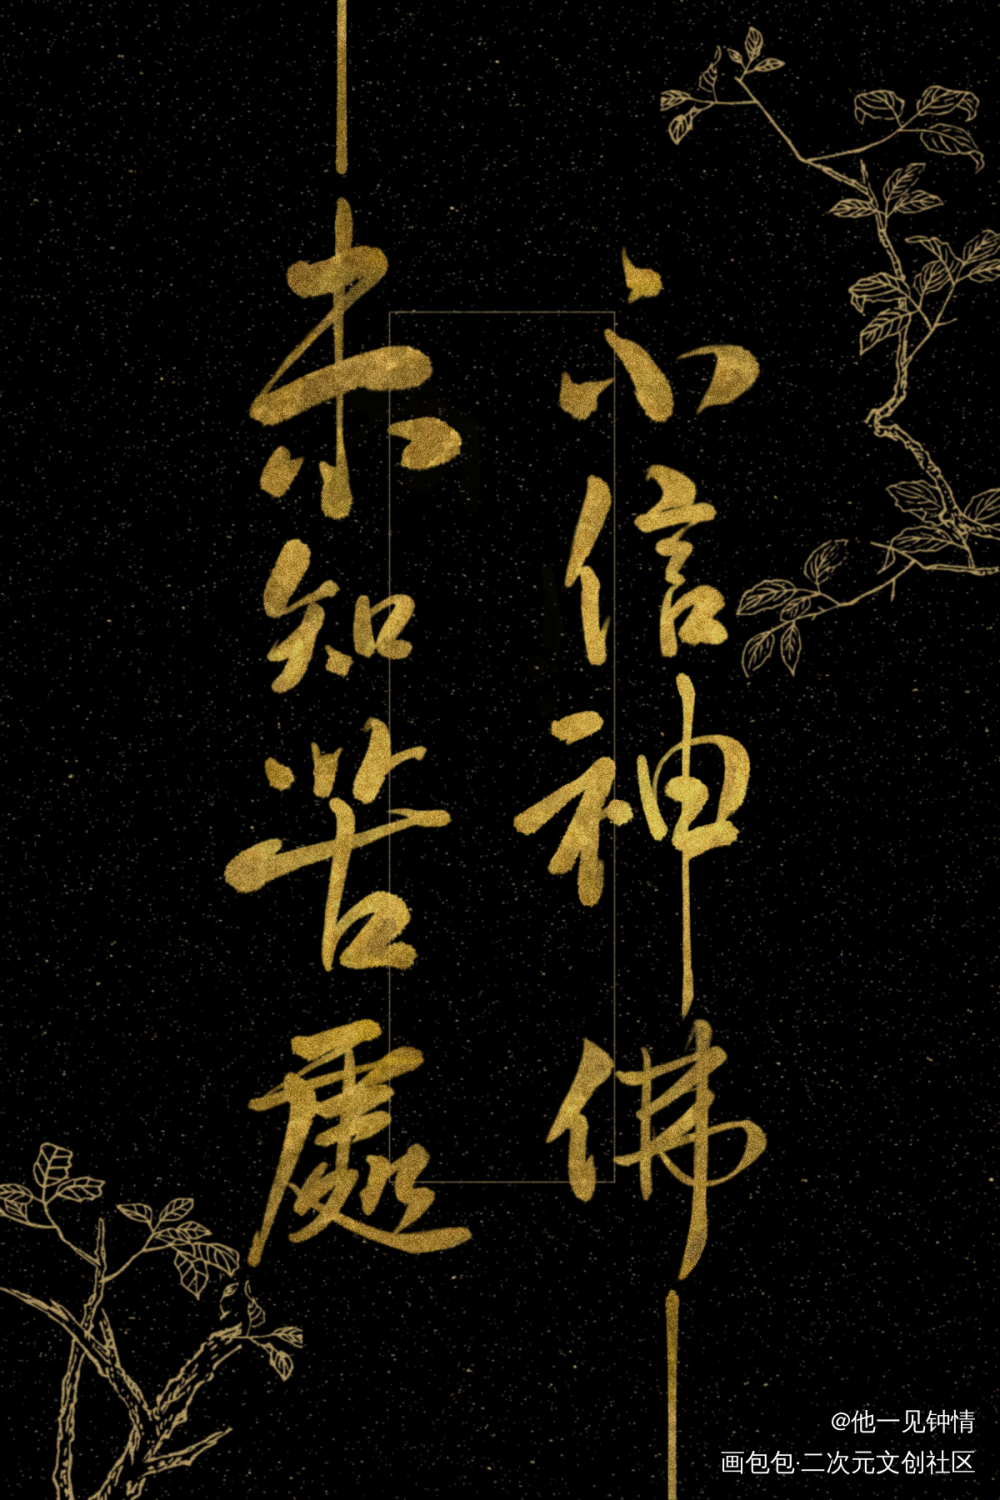 不信神佛
未知苦處
@他一见钟情
画包包·二次元文创社区